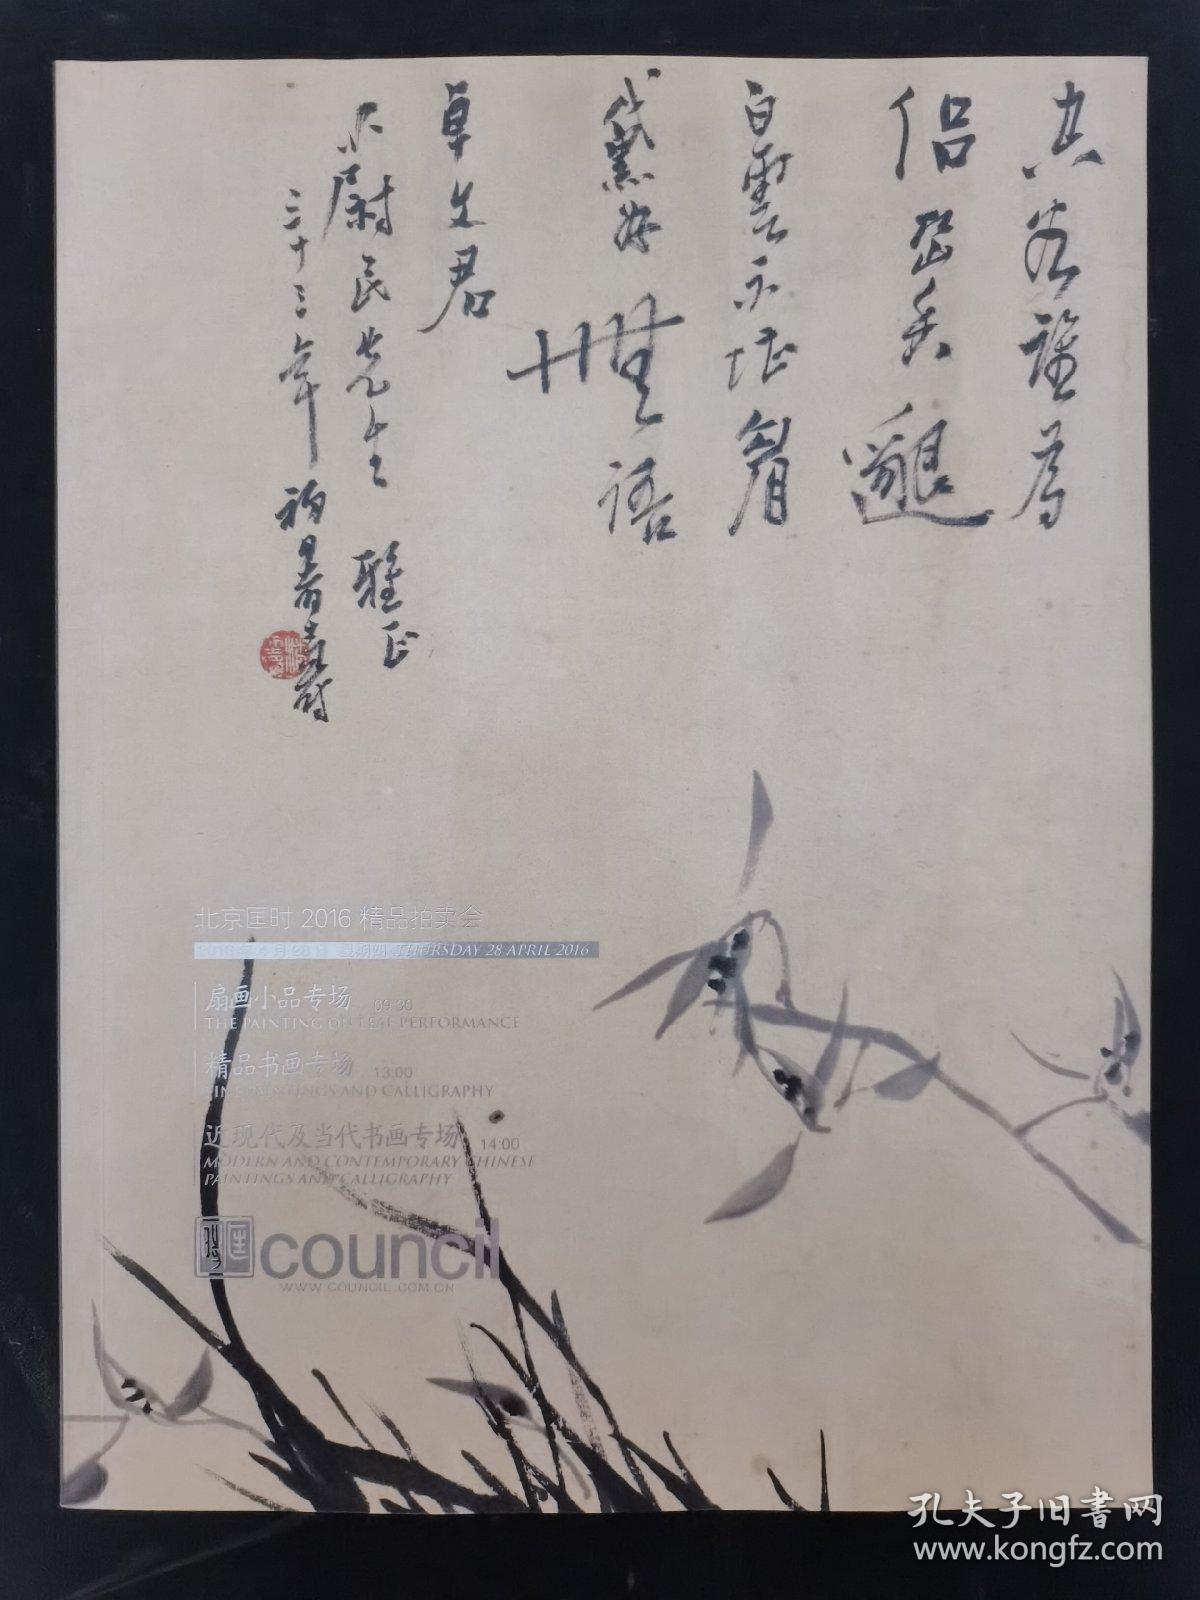 誰為
侶
白雲不堪
黛 無語
卓文君
尉民先生 雅正
三十三年
北京匡时 2016 精品拍卖会
2016年4月28日 星期四 THURSDAY 28 APRIL 2016
扇画小品专场 09:30
THE PAINTING OF LEAF PERFORMANCE
精品书画专场 13:00
FINE PAINTINGS AND CALLIGRAPHY
近现代及当代书画专场 14:00
MODERN AND CONTEMPORARY CHINESE
PAINTINGS AND CALLIGRAPHY
council
WWW.COUNCIL.COM.CN
孔夫子旧书网
www.kongfz.com